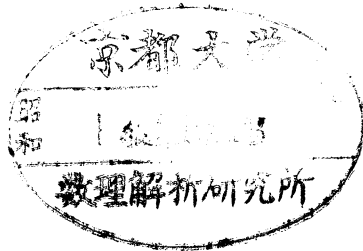 京都大学
昭和
数理解析研究所